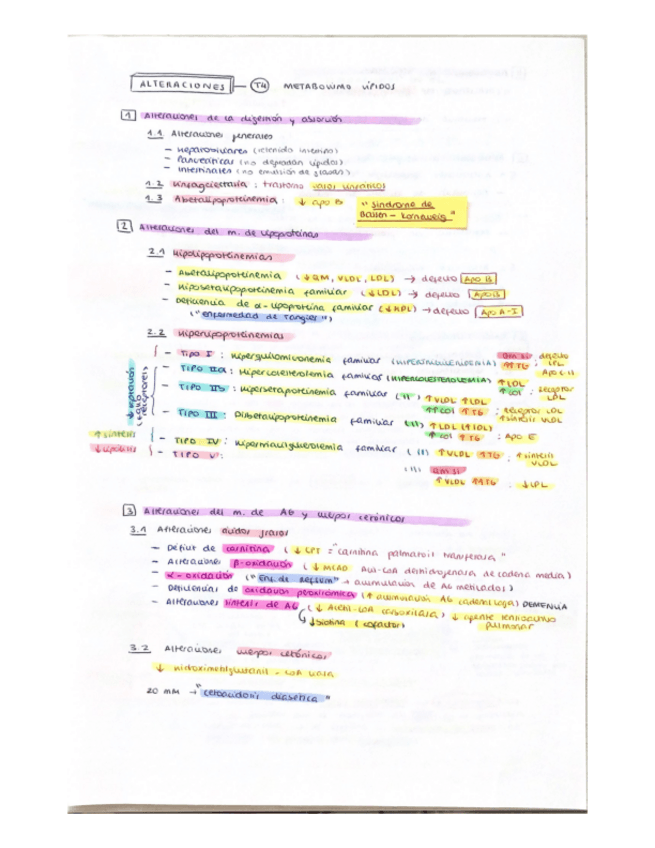 ALTERACIONES — T4 METABOLISMO LÍPIDOS
1 Alteraciones de la digestión y absorción
1.1 Alteraciones generales
- Hepatobiliares (retenido intestino)
- Pancreáticas (no degradan lípidos)
- Intestinales (no emulsión de grasas)
1.2 Linfagiectasia: trastorno vasos linfáticos
1.3 Abetalipoproteinemia: ↓ apo B "Síndrome de
Bassen - Kornzweig"
2 Alteraciones del m. de lipoproteínas
2.1 Hipolipoproteinemias
- Abetalipoproteinemia (↓QM, VLDL, LDL) → defecto Apo B
- Hipobetalipoproteinemia familiar (↓LDL) → defecto Apo B
- Deficiencia de α-lipoproteína familiar (↓HDL) → defecto Apo A-I
("enfermedad de Tangier")
2.2 Hiperlipoproteinemias
- TIPO I: Hiperquilomicronemia familiar (HIPERTRIGLICERIDEMIA) QM sí ↑TG defecto LPL Apo C II
- TIPO IIa: Hipercolesterolemia familiar (HIPERCOLESTEROLEMIA) ↑LDL ↑col : receptor LDL
- TIPO IIb: Hiperbetaproteinemia familiar (11) ↑VLDL ↑LDL
↑col ↑TG : receptor LDL ↑síntesis VLDL
- TIPO III: Disbetalipoproteinemia familiar (11) ↑LDL (↑IDL)
↑col ↑TG : Apo E
- TIPO IV: familiar (11) ↑VLDL ↑TG : ↑síntesis VLDL
- TIPO V: (11) QM sí
↑VLDL ↑TG : ↓LPL
↑síntesis
↓lipólisis
3 Alteraciones del m. de AG y cuerpos cetónicos
3.1 Alteraciones ácidos grasos
- Déficit de carnitina (↓ CPT = "carnitina palmitoil transferasa"
- Alteraciones β-oxidación (↓ MCAD Acil-CoA deshidrogenasa de cadena media)
- α-oxidación ("Enf. de Refsum" → acumulación de AG metilados)
- Deficiencias de oxidación peroxisómica (↑ acumulación AG cadena larga) DEMENCIA
- Alteraciones síntesis de AG (↓ Acetil-CoA carboxilasa) ↓ agente tensioactivo
↓biotina (cofactor) pulmonar
3.2 Alteraciones cuerpos cetónicos
↓ hidroximetilglutaril-CoA liasa
20 mM → "cetoacidosis diabética"